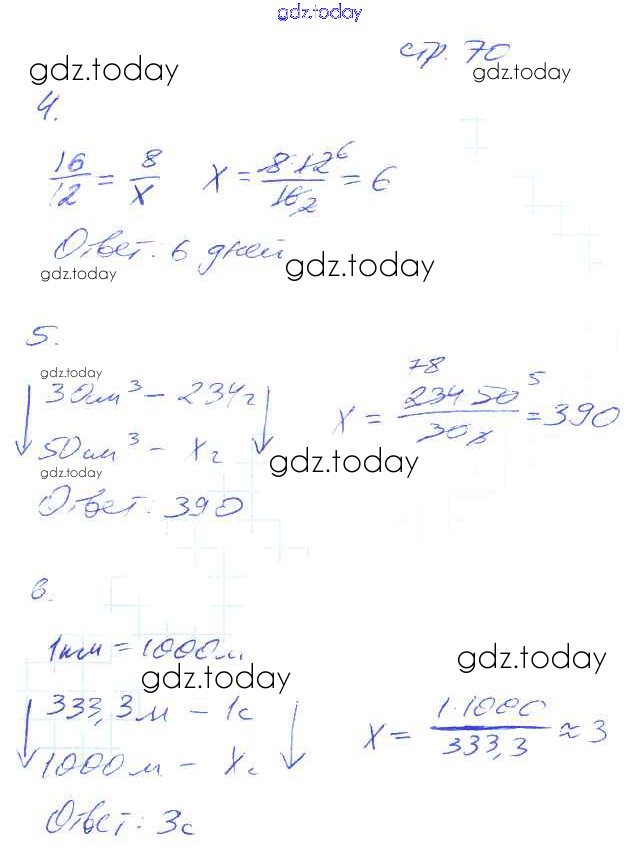 gdz.today
стр. 70
gdz.today gdz.today
4.
16/12 = 8/x x = 8·12 6/16 2 = 6
Ответ: 6 дней
gdz.today gdz.today
5.
gdz.today
↓ 30 см³ – 234 г ↓ x = 78 234 50 5/30 = 390
50 см³ – x г
gdz.today gdz.today
Ответ: 390
6.
1 км = 1000 м
gdz.today gdz.today
↓ 333,3 м – 1 с ↓ x = 1·1000/333,3 ≈ 3
1000 м – x с
Ответ: 3 с